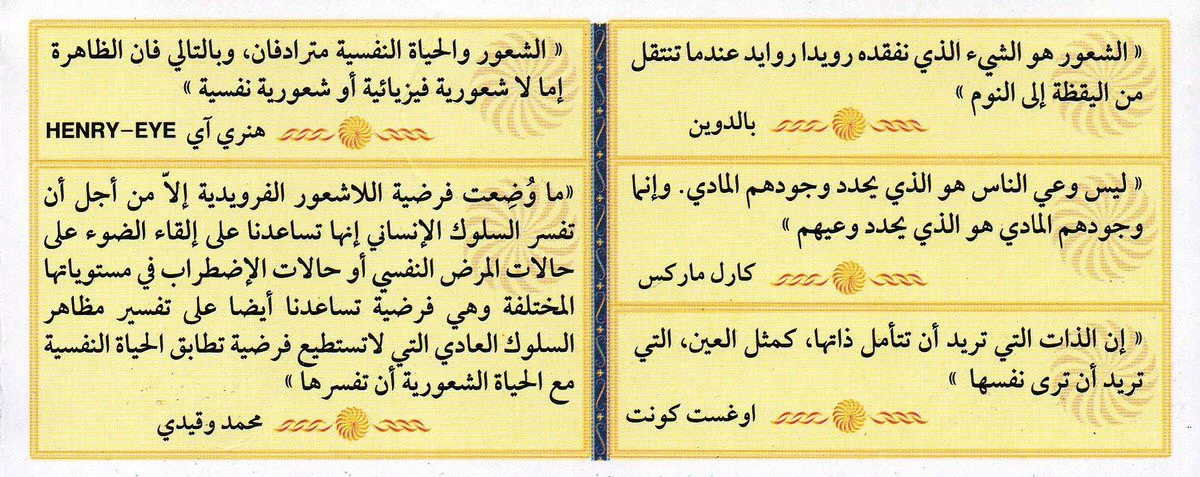 « الشعور هو الشيء الذي نفقده رويدا روايد عندما تنتقل
من اليقظة إلى النوم »
بالدوين
« ليس وعي الناس هو الذي يحدد وجودهم المادي. وإنما
وجودهم المادي هو الذي يحدد وعيهم »
كارل ماركس
« إن الذات التي تريد أن تتأمل ذاتها، كمثل العين، التي
تريد أن ترى نفسها »
اوغست كونت
« الشعور والحياة النفسية مترادفان، وبالتالي فان الظاهرة
إما لا شعورية فيزيائية أو شعورية نفسية »
هنري آي HENRY-EYE
«ما وُضِعت فرضية اللاشعور الفرويدية إلاّ من أجل أن
تفسر السلوك الإنساني إنها تساعدنا على إلقاء الضوء على
حالات المرض النفسي أو حالات الإضطراب في مستوياتها
المختلفة وهي فرضية تساعدنا أيضا على تفسير مظاهر
السلوك العادي التي لاتستطيع فرضية تطابق الحياة النفسية
مع الحياة الشعورية أن تفسرها »
محمد وقيدي